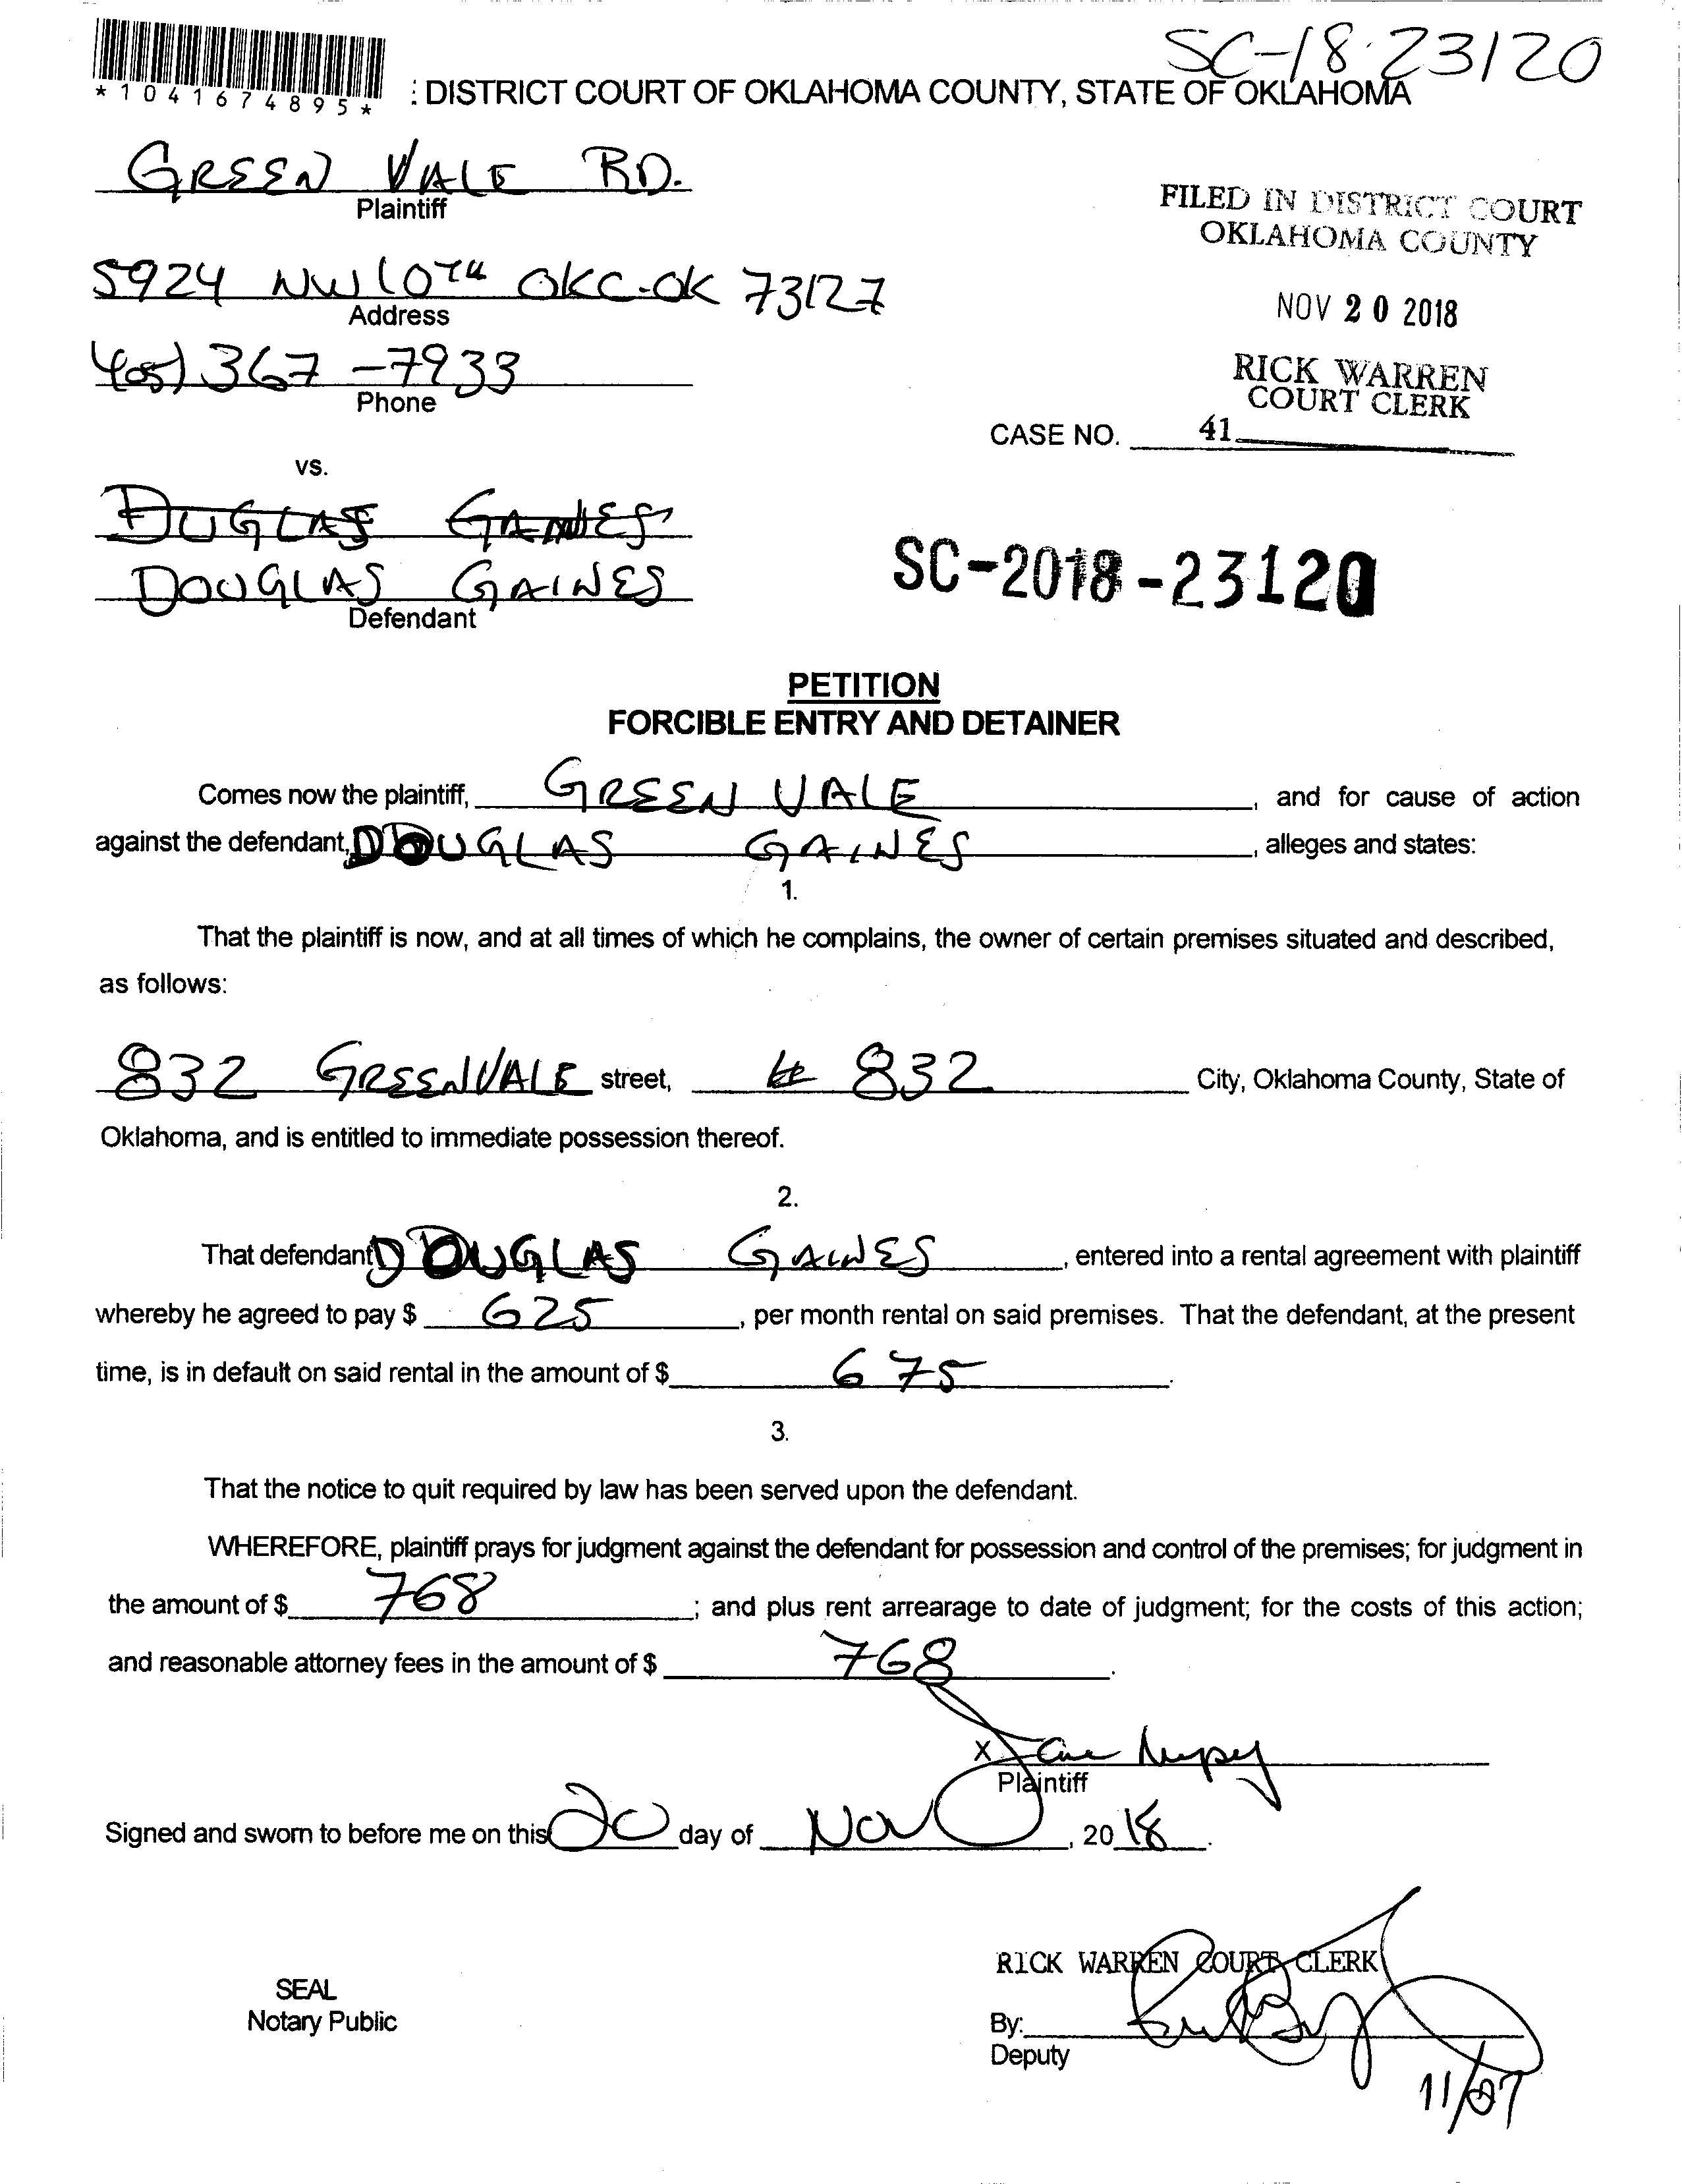 SC-18-23120
*1041674895*
: DISTRICT COURT OF OKLAHOMA COUNTY, STATE OF OKLAHOMA
GREEN VALE RD.
Plaintiff
FILED IN DISTRICT COURT
OKLAHOMA COUNTY
5924 NW 10TH OKC-OK 73127
Address
NOV 20 2018
405) 367-7933
Phone
RICK WARREN
COURT CLERK
CASE NO. 41
vs.
DUGLAS GAINES
DOUGLAS GAINES
Defendant
SC-2018-23120
PETITION
FORCIBLE ENTRY AND DETAINER
Comes now the plaintiff, GREEN VALE, and for cause of action
against the defendant, DOUGLAS GAINES, alleges and states:
1.
That the plaintiff is now, and at all times of which he complains, the owner of certain premises situated and described,
as follows:
832 GREENVALE street, # 832 City, Oklahoma County, State of
Oklahoma, and is entitled to immediate possession thereof.
2.
That defendant DOUGLAS GAINES, entered into a rental agreement with plaintiff
whereby he agreed to pay $ 625, per month rental on said premises. That the defendant, at the present
time, is in default on said rental in the amount of $ 675.
3.
That the notice to quit required by law has been served upon the defendant.
WHEREFORE, plaintiff prays for judgment against the defendant for possession and control of the premises; for judgment in
the amount of $ 768; and plus rent arrearage to date of judgment; for the costs of this action;
and reasonable attorney fees in the amount of $ 768.
X
Plaintiff
Signed and sworn to before me on this 20 day of Nov, 2018.
RICK WARREN COURT CLERK
SEAL
Notary Public
By:
Deputy
11/07